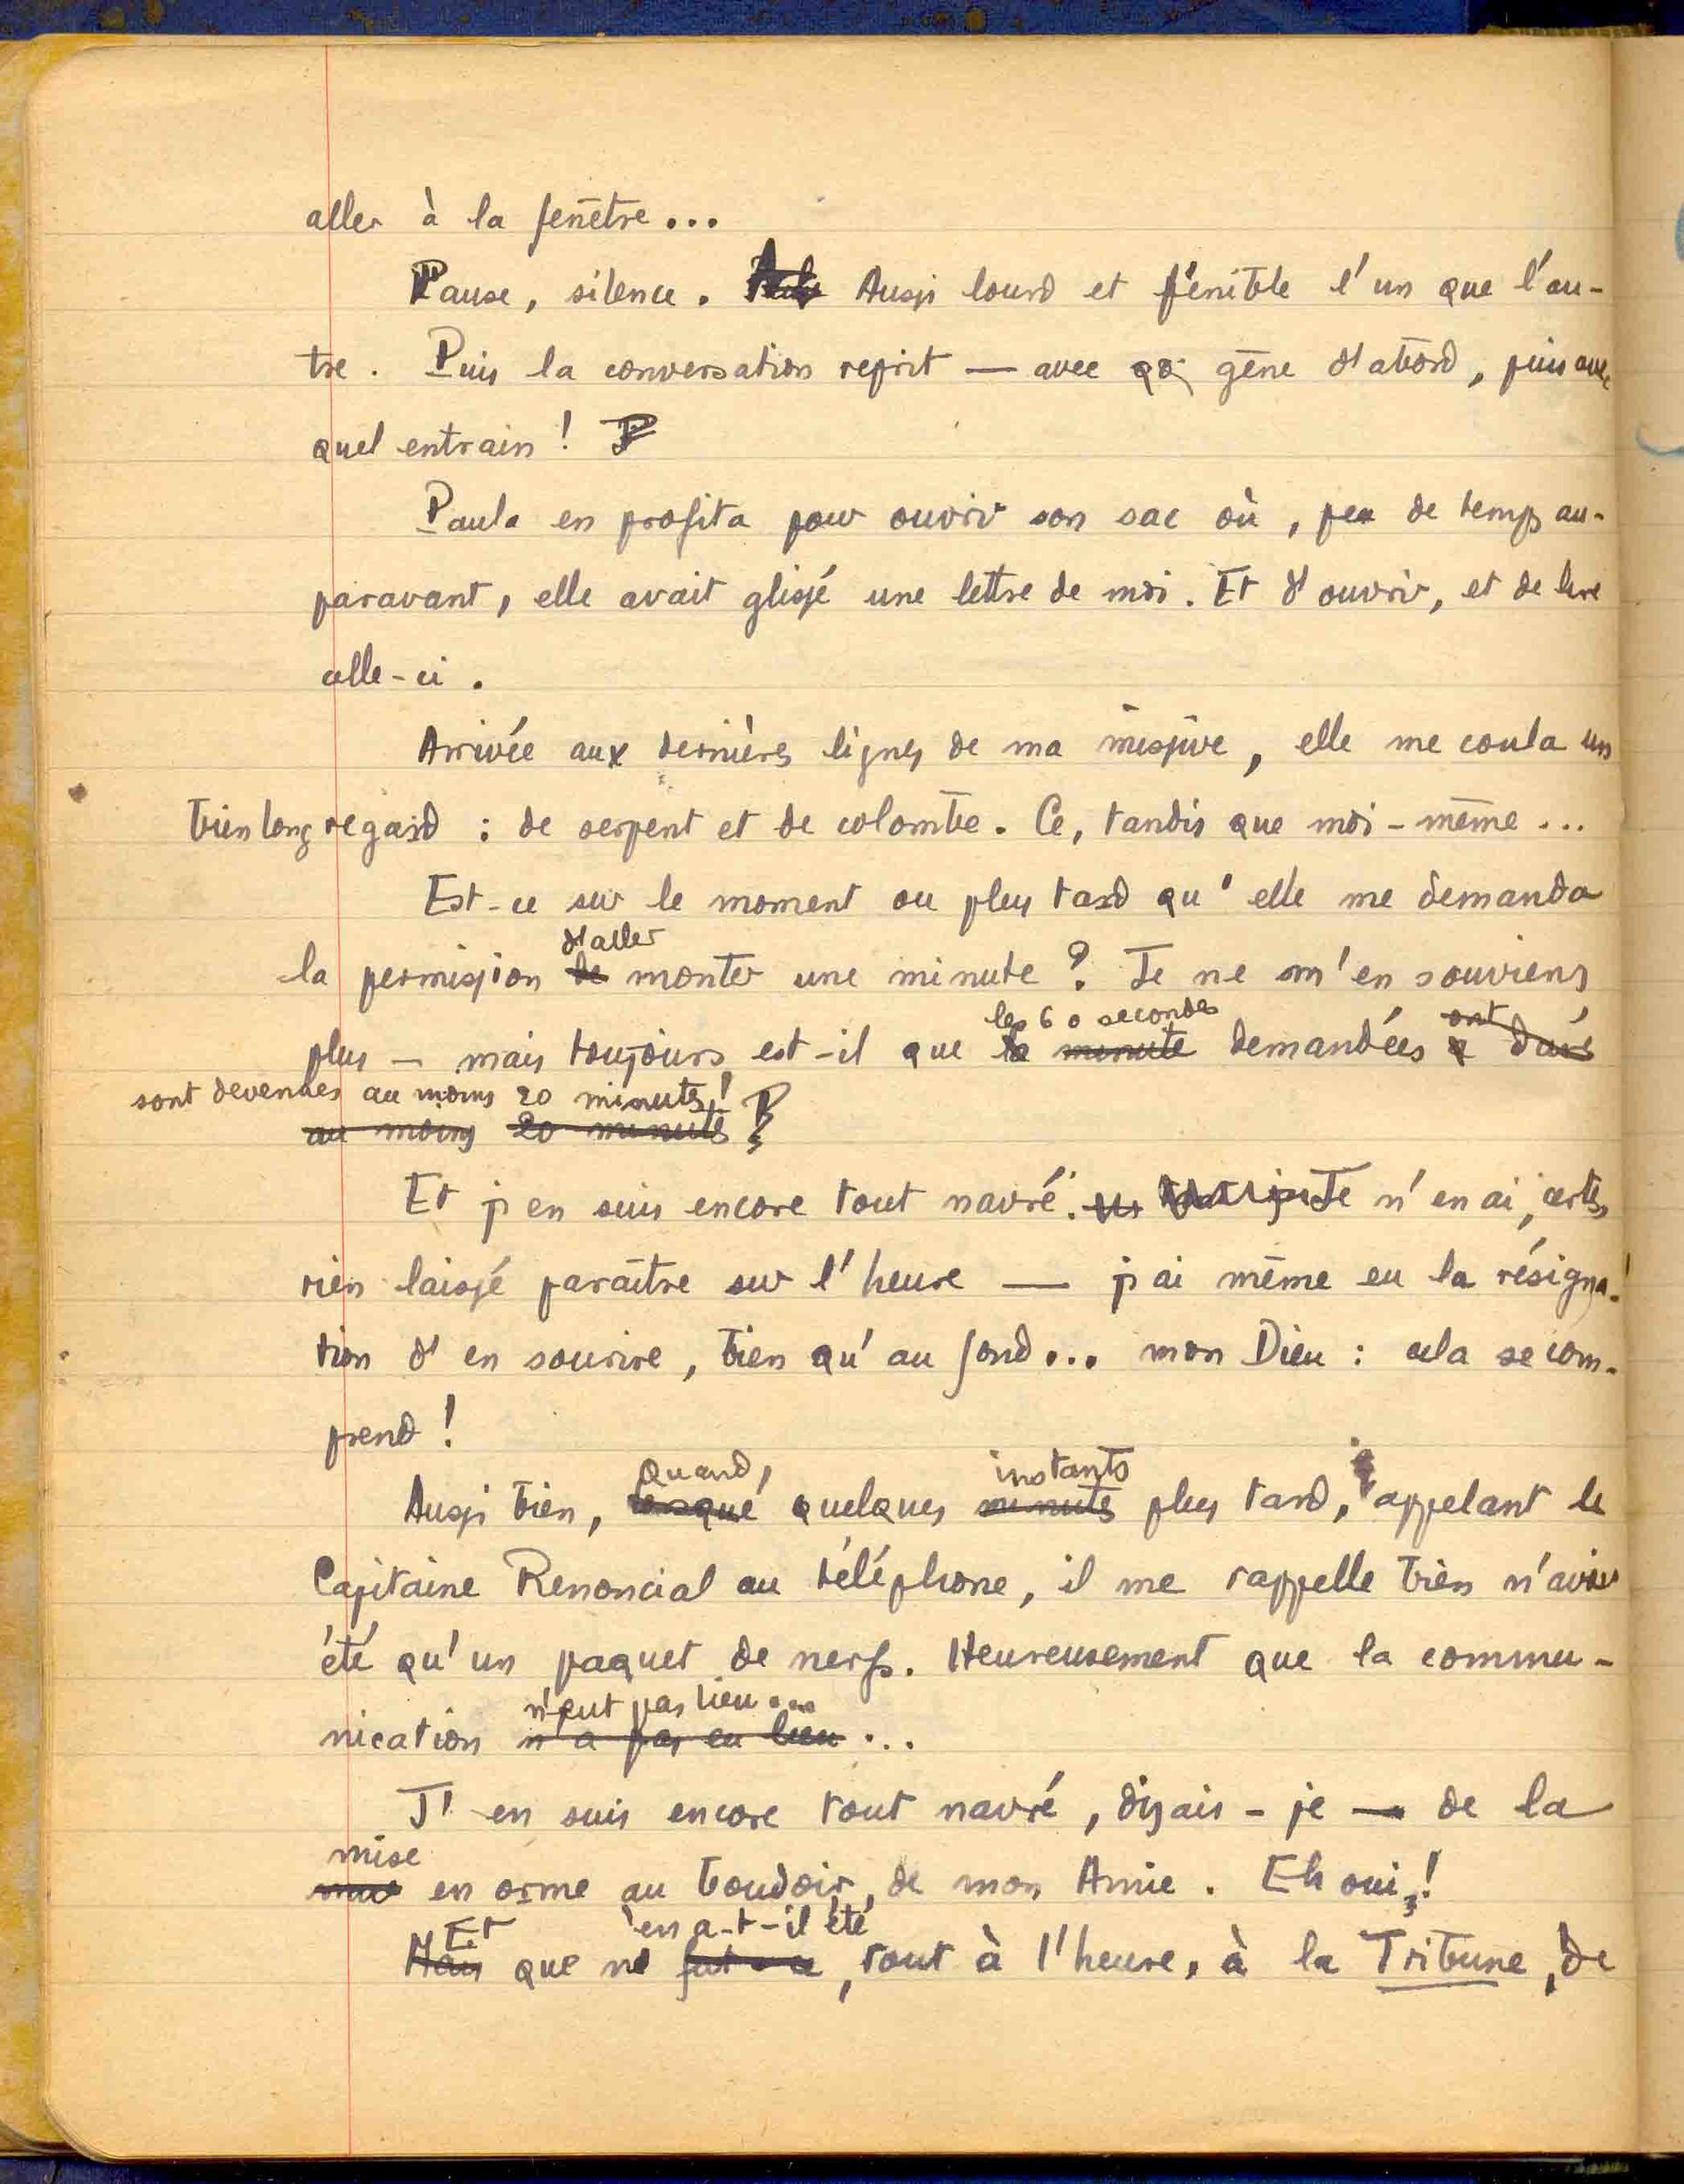 aller à la fenêtre...
Pause, silence. Aussi lourd et pénible l'un que l'au-
tre. Puis la conversation reprit — avec qq gêne d'abord, puis avec
quel entrain !
Paula en profita pour ouvrir son sac où, peu de temps au-
paravant, elle avait glissé une lettre de moi. Et d'ouvrir, et de lire
celle-ci.
Arrivée aux dernières lignes de ma missive, elle me coula un
bien long regard : de serpent et de colombe. Ce, tandis que moi-même...
Est-ce sur le moment ou plus tard qu'elle me demanda
d'aller
la permission de monter une minute ? Je ne m'en souviens
les 60 secondes ont
plus — mais toujours est-il que la minute demandées a duré
sont devenues au moins 20 minutes !
au moins 20 minutes
Et j'en suis encore tout navré. Je n'en ai, certes,
rien laissé paraître sur l'heure — j'ai même eu la résigna-
tion d'en sourire, bien qu'au fond... mon Dieu : cela se com-
prend !
Quand, instants
Aussi bien, lorsque quelques minutes plus tard, appelant le
Capitaine Renoncial au téléphone, il me rappelle bien n'avoir
été qu'un paquet de nerfs. Heureusement que la commu-
n'eut pas lieu...
nication n'a pas eu lieu...
J'en suis encore tout navré, disais-je — de la
mise
en orme au boudoir, de mon Amie. Eh oui !
Et en a-t-il été
Mais que ne fut-ce, tout à l'heure, à la Tribune, de